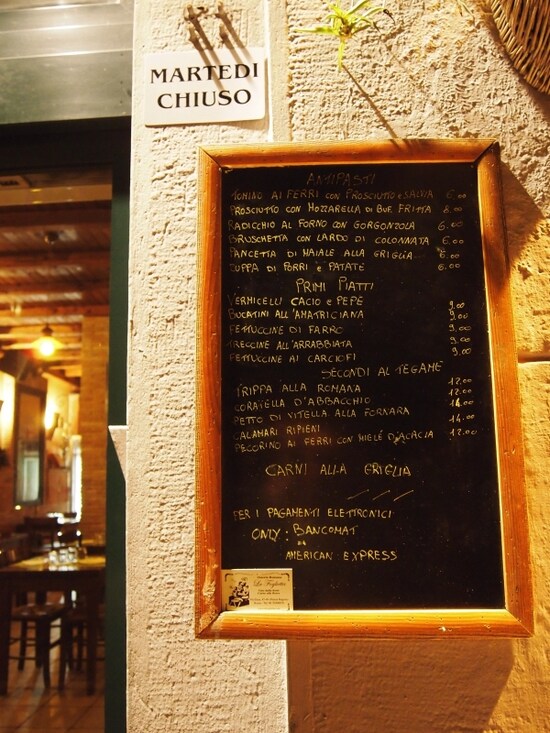 MARTEDI
CHIUSO
ANTIPASTI
TOMINO AI FERRI CON PROSCIUTTO E SALVIA 6.00
PROSCIUTTO CON MOZZARELLA DI BUF. FRITTA 8.00
RADICCHIO AL FORNO CON GORGONZOLA 6.00
BRUSCHETTA CON LARDO DI COLONNATA 6.00
PANCETTA DI MAIALE ALLA GRIGLIA 6.00
ZUPPA DI PORRI e PATATE 6.00
PRIMI PIATTI
VERMICELLI CACIO e PEPE 9.00
BUCATINI ALL'AMATRICIANA 9.00
FETTUCCINE DI FARRO 9.00
TRECCINE ALL'ARRABBIATA 9.00
FETTUCCINE AI CARCIOFI 9.00
SECONDI AL TEGAME
TRIPPA ALLA ROMANA 12.00
CORATELLA D'ABBACCHIO 12.00
PETTO DI VITELLA ALLA FORNARA 14.00
CALAMARI RIPIENI 14.00
PECORINO AI FERRI CON MIELE D'ACACIA 12.00
CARNI ALLA GRIGLIA
PER I PAGAMENTI ELETTRONICI
ONLY: BANCOMAT
AMERICAN EXPRESS